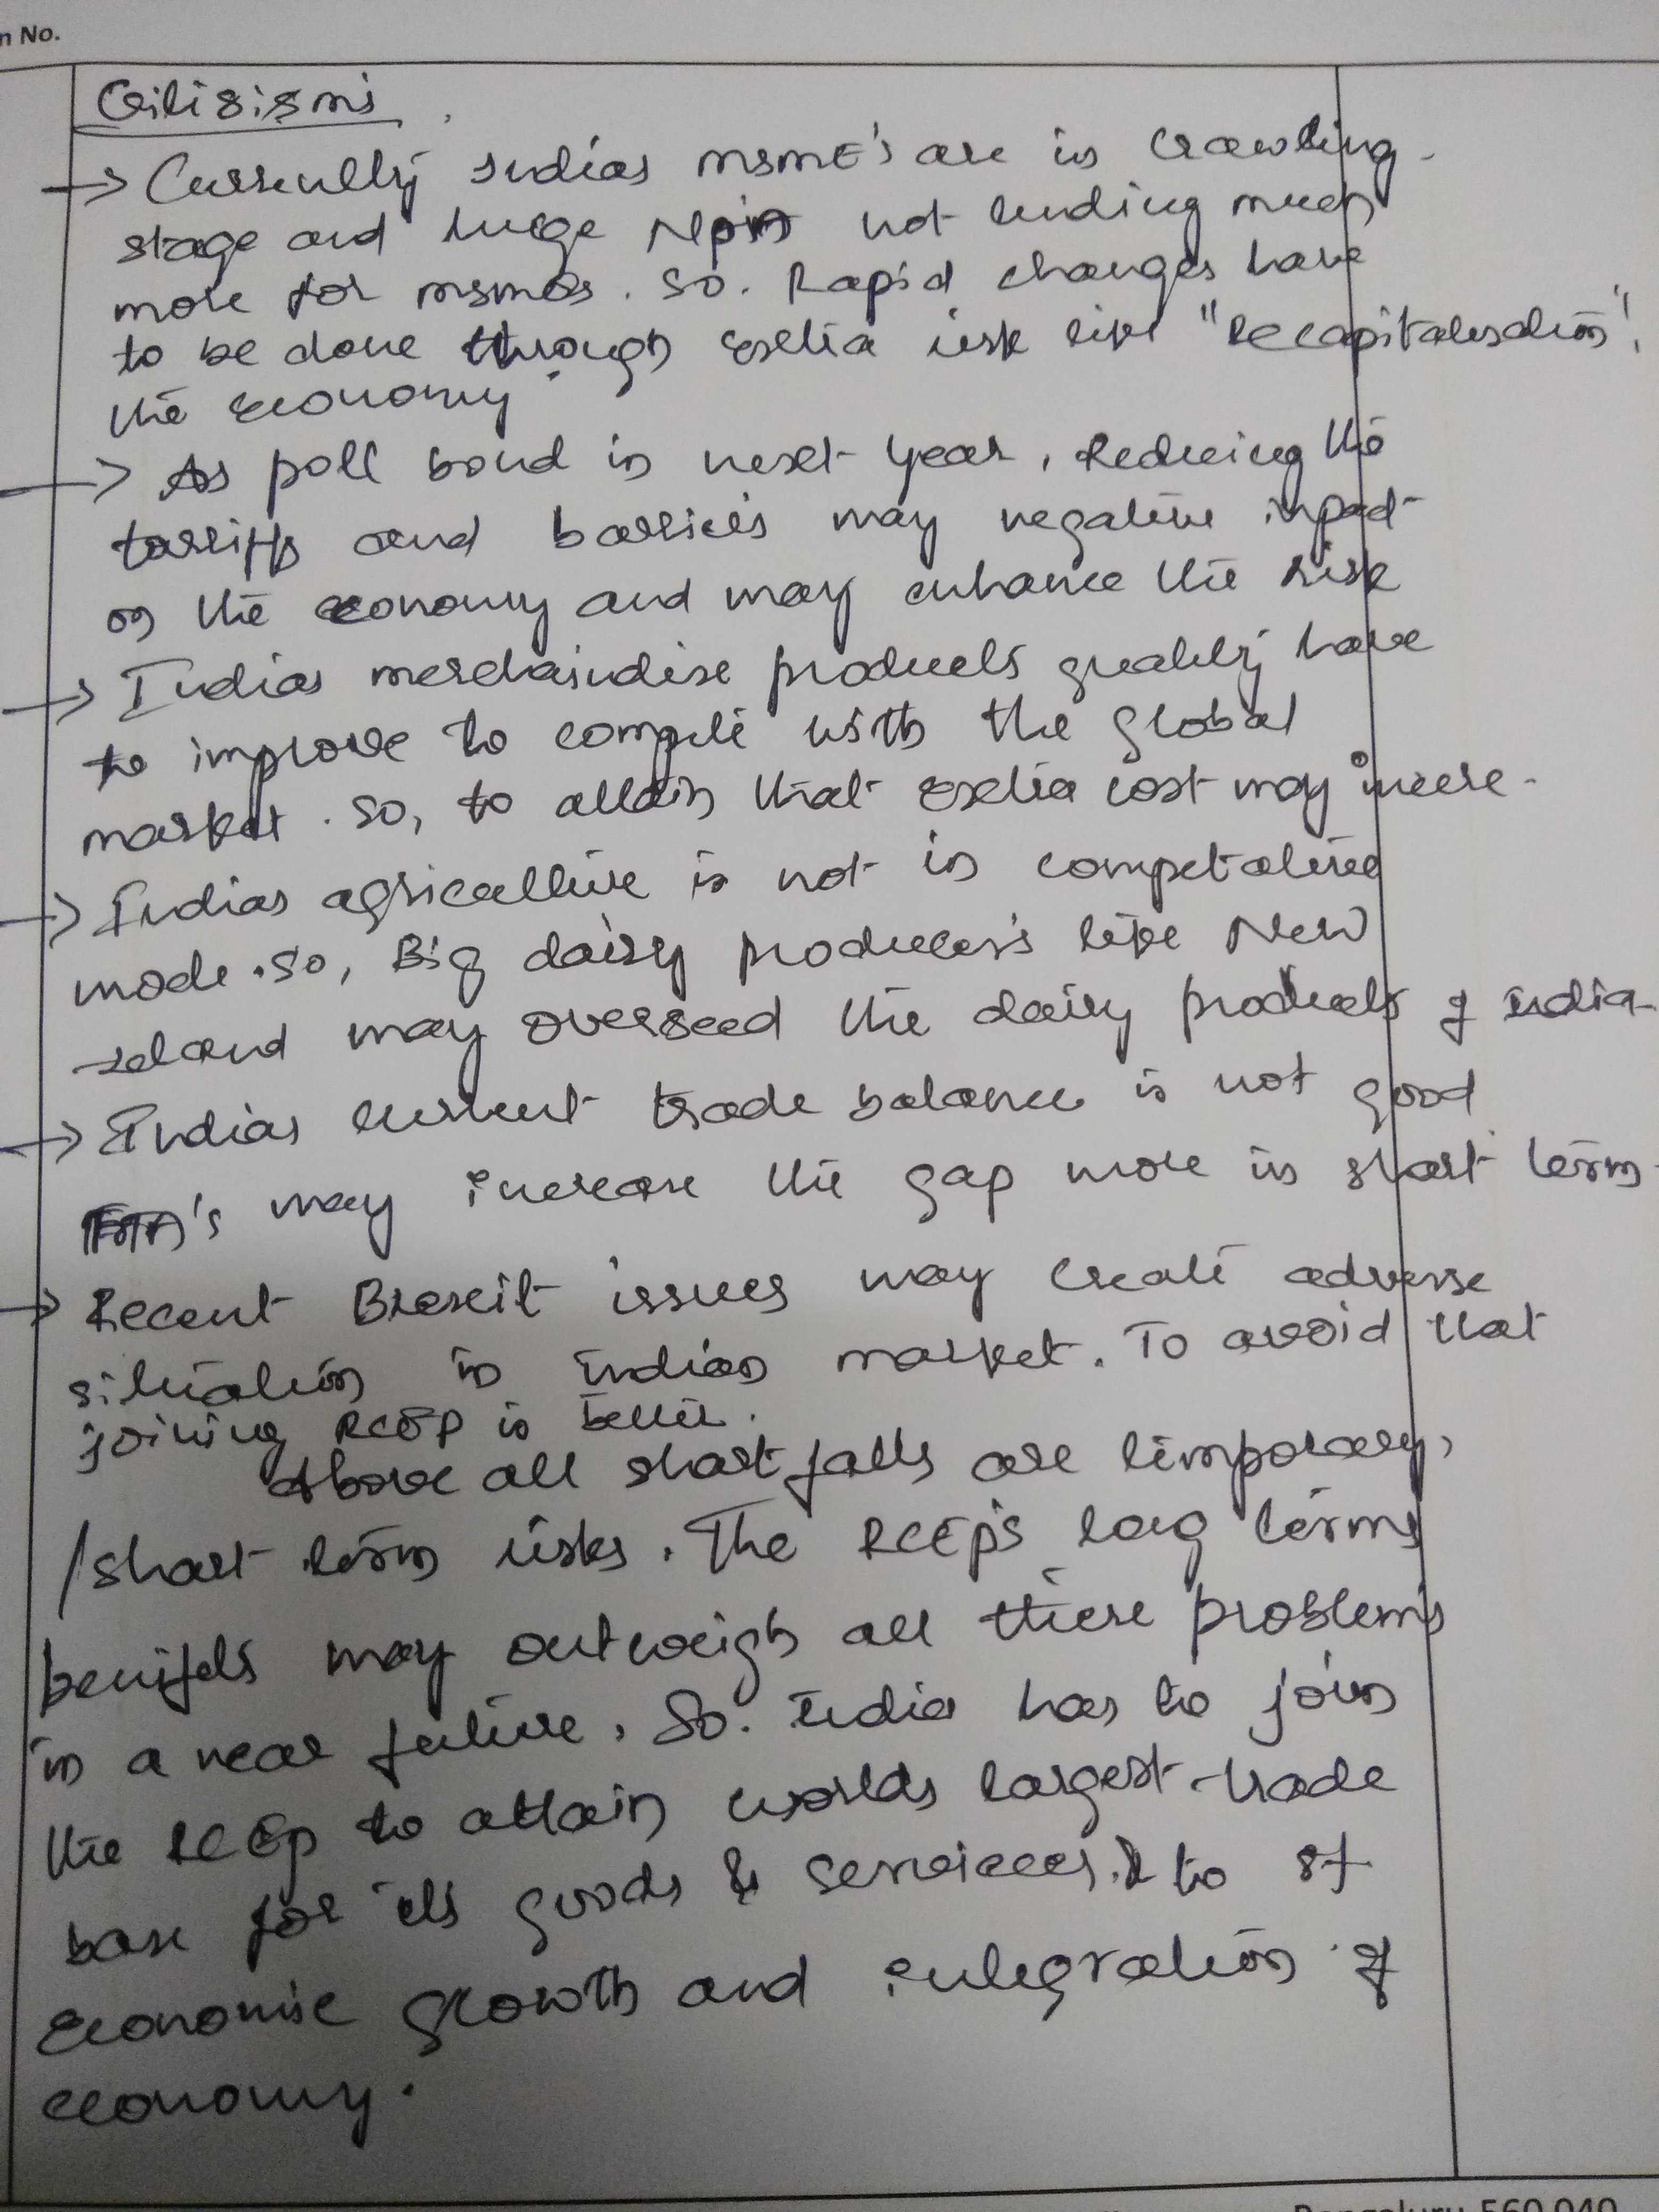 n No.
Critisisms
→ Currently Indias MSME's are in crawling
stage and huge NPA's not lending much
more for MSMEs. So. Rapid changes have
to be done through extra risk like "Recapitalisation".
the economy
→ As poll bond is next year, Reducing the
tarriffs and barriers may negative inpact
on the economy and may enhance the risk
→ Indias merchaindise products quality have
to improve to compete with the global
market. So, to attain that extra cost may incere.
→ Indias agriculture is not in competative
mode. So, Big dairy producer's like New
zeland may overseed the dairy products of India
→ Indias current trade balance is not good
FTA's may increase the gap more in short term.
→ Recent Brexit issues may create adverse
situation in Indian market. To avoid that
joining RCEP is better.
Above all short falls are timporary,
/short term risks. The RCEP's long terms
benifits may outweigh all these problems
in a near future. So. India has to join
the RCEP to attain worlds largest trade
base for its goods & services. & to it
economic growth and integration of
economy.
Bengaluru-560 040